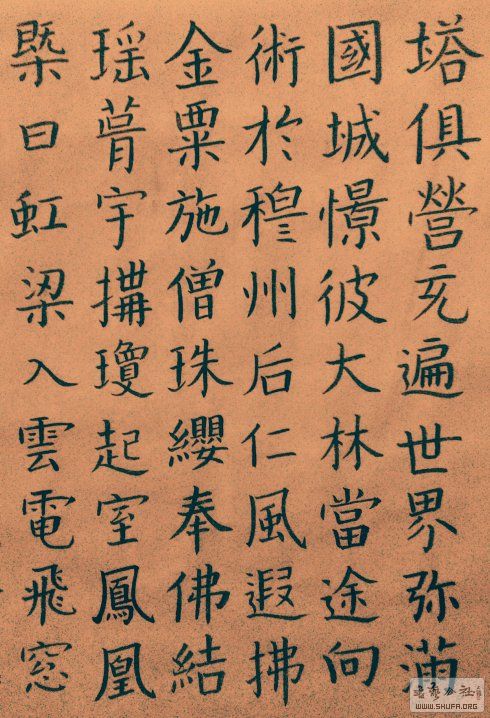 塔俱營充遍世界弥滿
國城憬彼大林當途向
術於穆州后仁風遐拂
金粟施僧珠纓奉佛結
瑶葺宇構瓊起室鳳凰
槩日虹梁入雲電飛窓
WWW.SHUFA.ORG